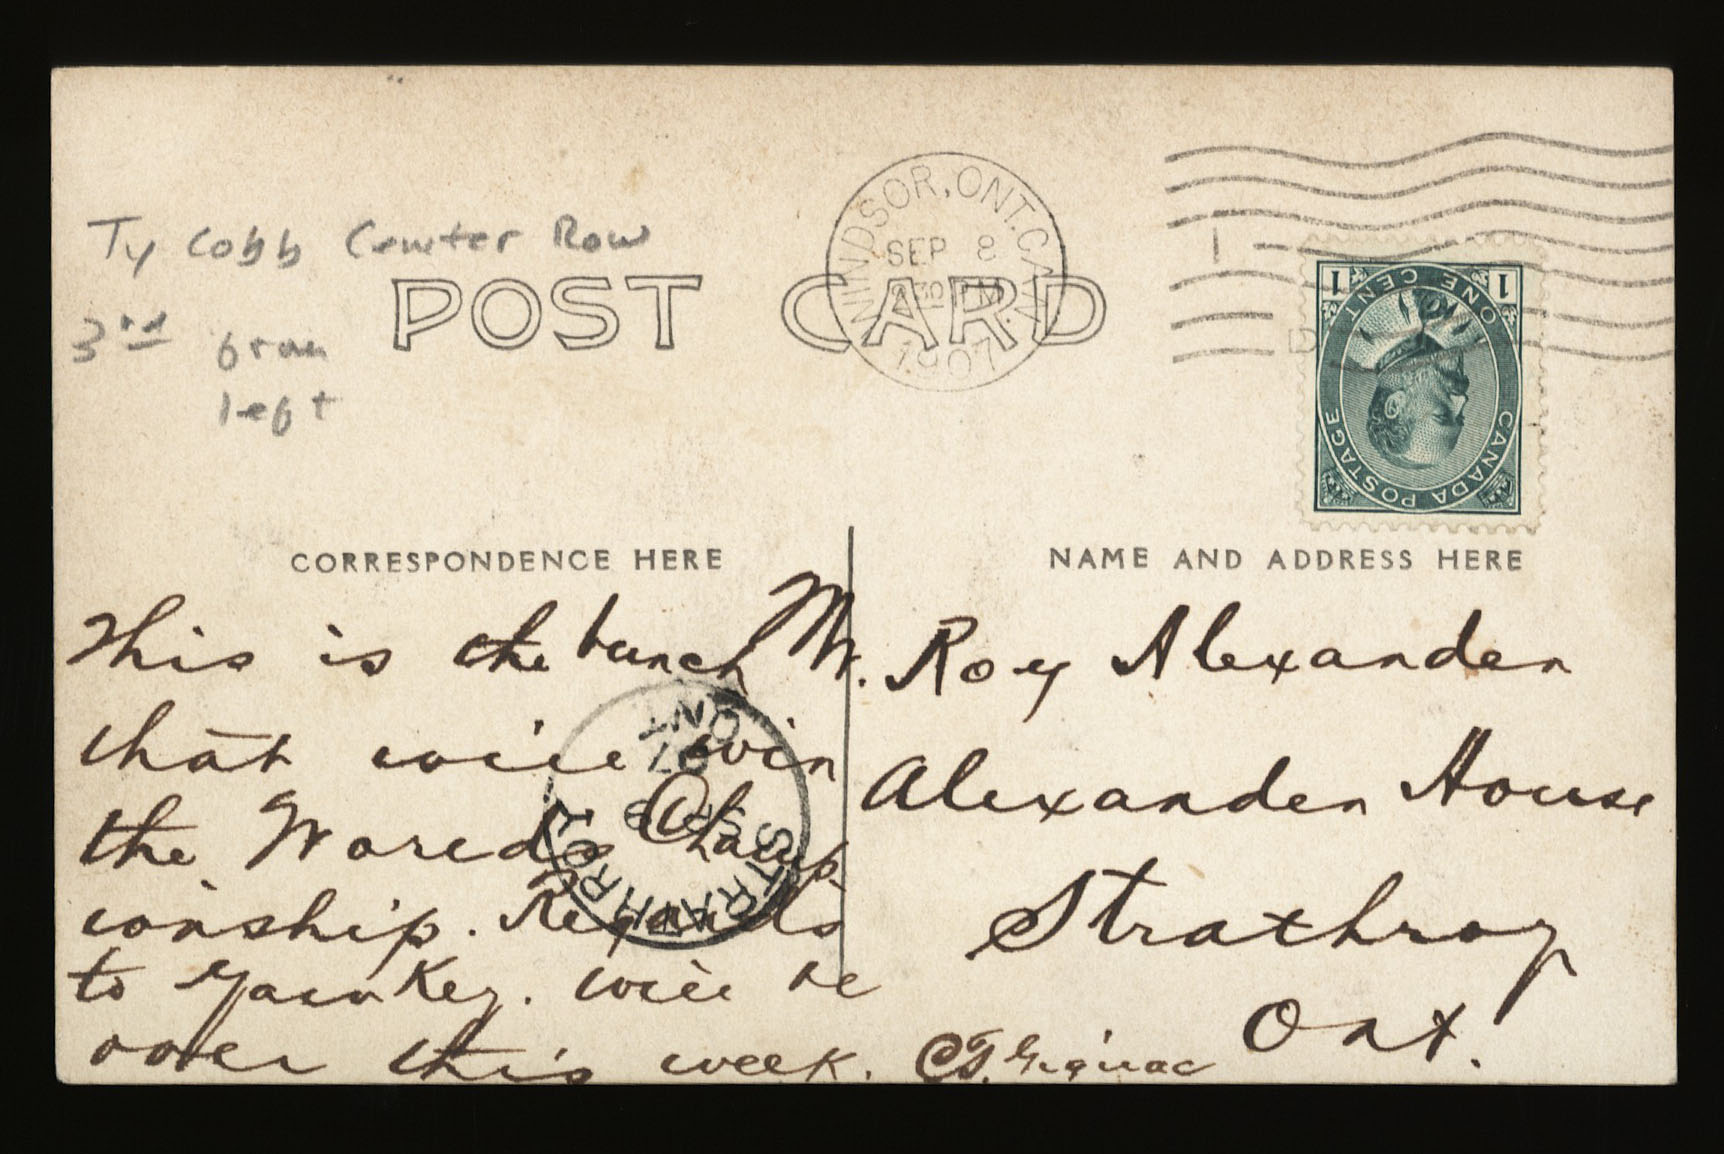 Ty Cobb Center Row
3rd from
left
POST CARD
WINDSOR, ONT. CAN.
SEP 8
30 PM
1907
1
1 1
ONE CENT
CANADA POSTAGE
CORRESPONDENCE HERE
NAME AND ADDRESS HERE
This is the bunch
that will win
the World's Champ
ionship. Regards
to Yawkey. Will be
over this week.
Mr. Roy Alexander
Alexander House
Strathroy
Ont.
STRATHROY
SP
07
ONT